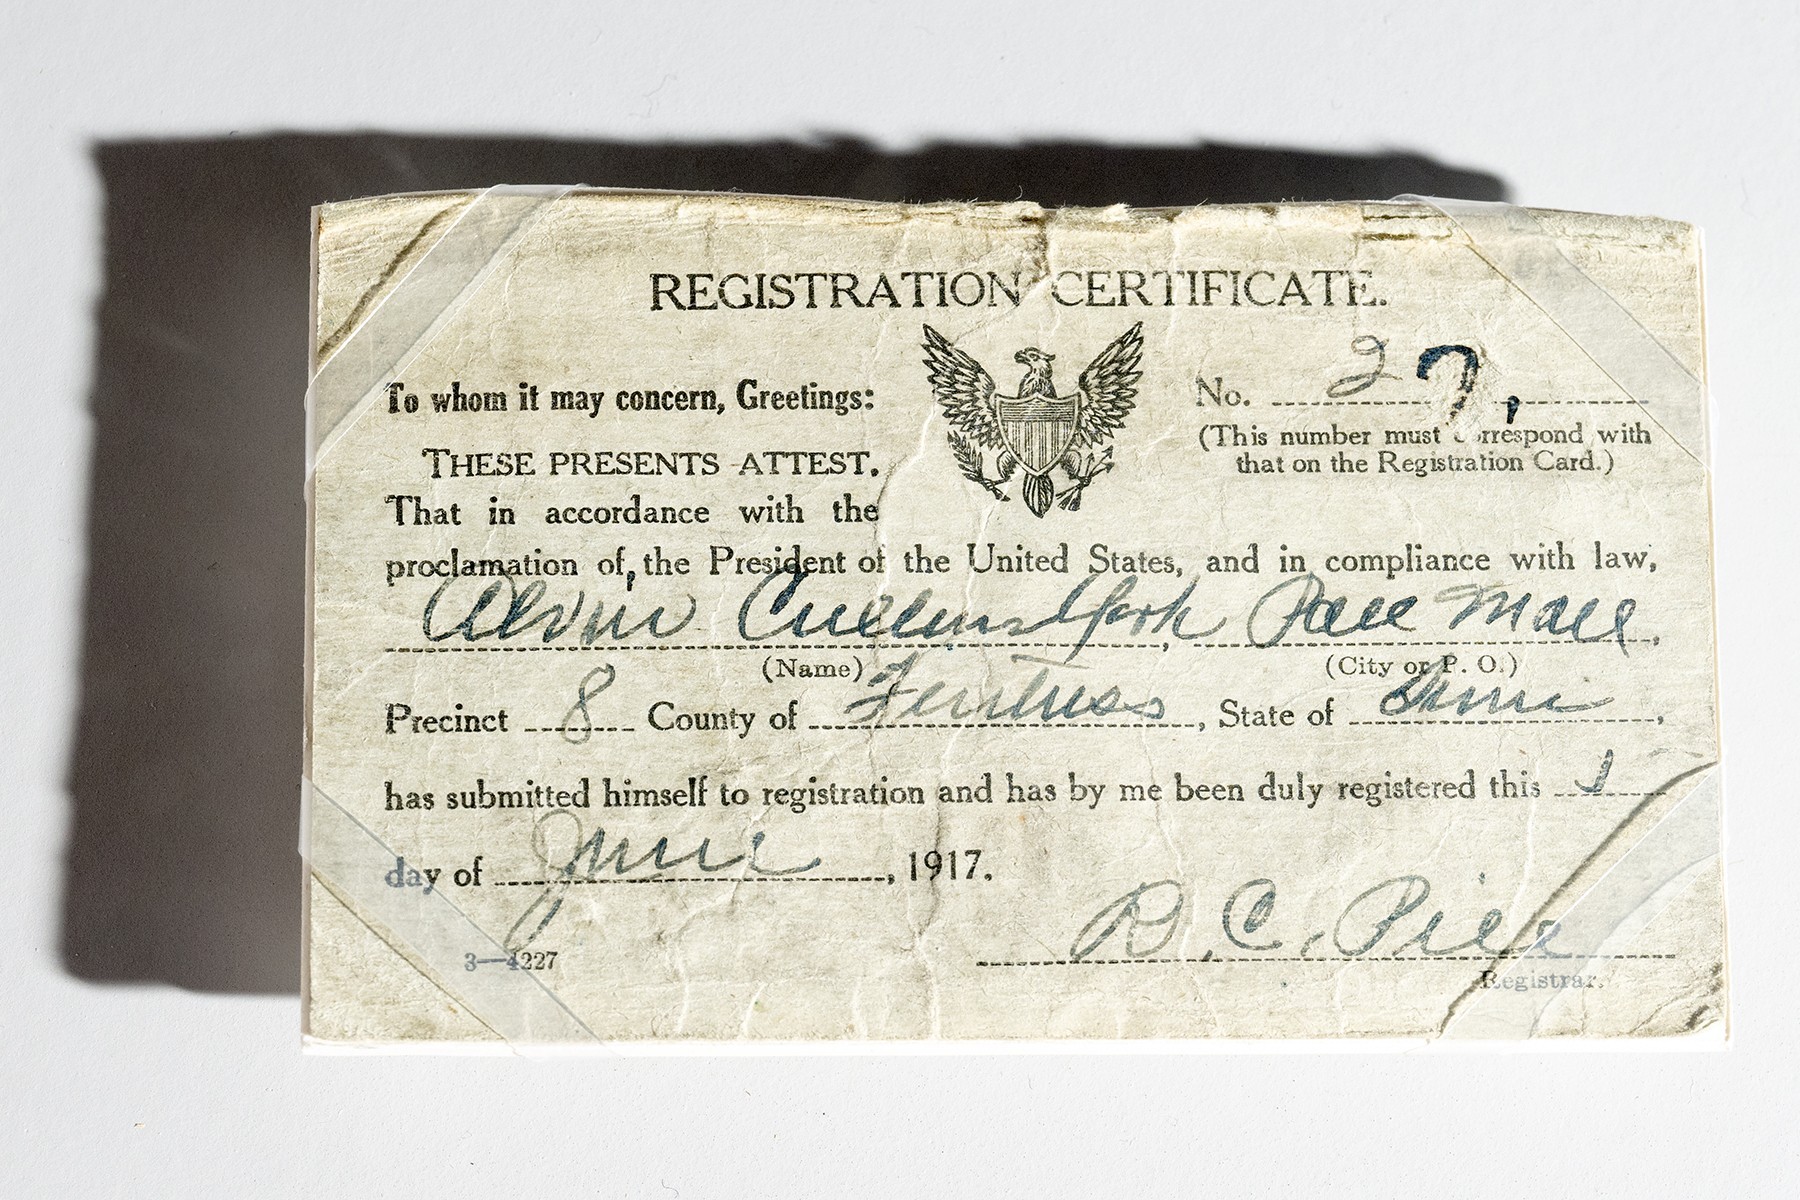 REGISTRATION CERTIFICATE.
To whom it may concern, Greetings:
No. 27,
(This number must correspond with
that on the Registration Card.)
THESE PRESENTS ATTEST.
That in accordance with the
proclamation of the President of the United States, and in compliance with law,
Alvin Cullum York Pall Mall,
(Name) (City or P. O.)
Precinct 8 County of Fentress, State of Tenn,
has submitted himself to registration and has by me been duly registered this 5
day of June, 1917.
R. C. Pile
3—4227
Registrar.